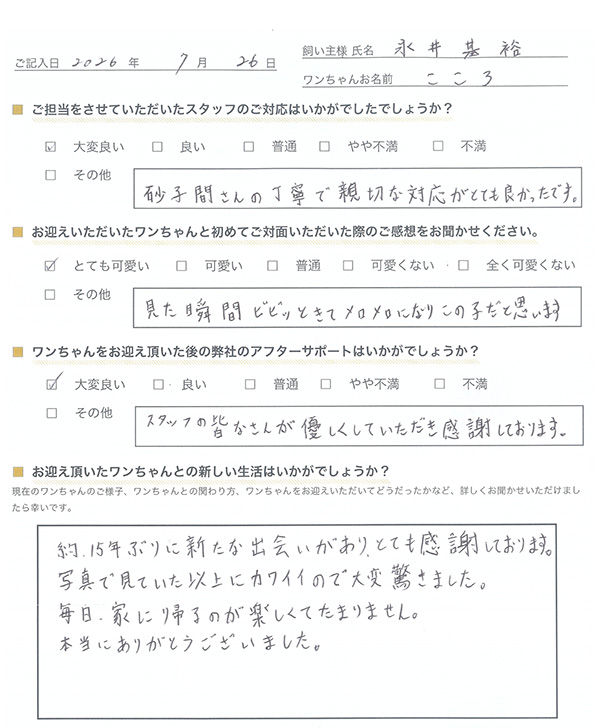 ご記入日 2026 年 7 月 26 日
飼い主様 氏名 永井 基裕
ワンちゃんお名前 こころ
■ ご担当をさせていただいたスタッフのご対応はいかがでしたでしょうか？
☑ 大変良い □ 良い □ 普通 □ やや不満 □ 不満
□ その他 砂子間さんの丁寧で親切な対応がとても良かったです。
■ お迎えいただいたワンちゃんと初めてご対面いただいた際のご感想をお聞かせください。
☑ とても可愛い □ 可愛い □ 普通 □ 可愛くない □ 全く可愛くない
□ その他 見た瞬間ビビッときてメロメロになりこの子だと思います
■ ワンちゃんをお迎え頂いた後の弊社のアフターサポートはいかがでしょうか？
☑ 大変良い □ 良い □ 普通 □ やや不満 □ 不満
□ その他 スタッフの皆なさんが優しくしていただき感謝しております。
■ お迎え頂いたワンちゃんとの新しい生活はいかがでしょうか？
現在のワンちゃんのご様子、ワンちゃんとの関わり方、ワンちゃんをお迎えいただいてどうだったかなど、詳しくお聞かせいただけまし
たら幸いです。
約.15年ぶりに新たな出会いがあり、とても感謝しております。
写真で見ていた以上にカワイイので大変驚きました。
毎日.家に帰るのが楽しくてたまりません。
本当にありがとうございました。